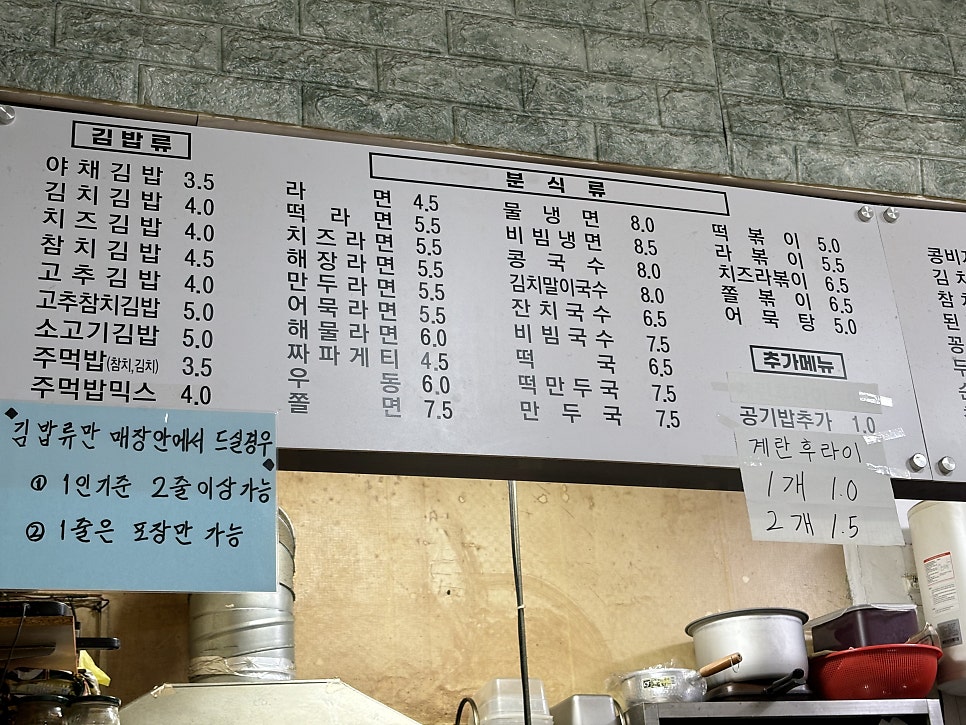 김밥류
야채김밥 3.5
김치김밥 4.0
치즈김밥 4.0
참치김밥 4.5
고추김밥 4.0
고추참치김밥 5.0
소고기김밥 5.0
주먹밥(참치,김치) 3.5
주먹밥믹스 4.0
분식류
라면 4.5
떡라면 5.5
치즈라면 5.5
해장라면 5.5
만두라면 5.5
어묵라면 5.5
해물라면 6.0
짜파게티 4.5
우동 6.0
쫄면 7.5
물냉면 8.0
비빔냉면 8.5
콩국수 8.0
김치말이국수 8.0
잔치국수 6.5
비빔국수 7.5
떡국 6.5
떡만두국 7.5
만두국 7.5
떡볶이 5.0
라볶이 5.5
치즈라볶이 6.5
쫄볶이 6.5
어묵탕 5.0
추가메뉴
공기밥추가 1.0
계란후라이
1개 1.0
2개 1.5
김밥류만 매장안에서 드실경우
① 1인기준 2줄이상가능
② 1줄은 포장만 가능